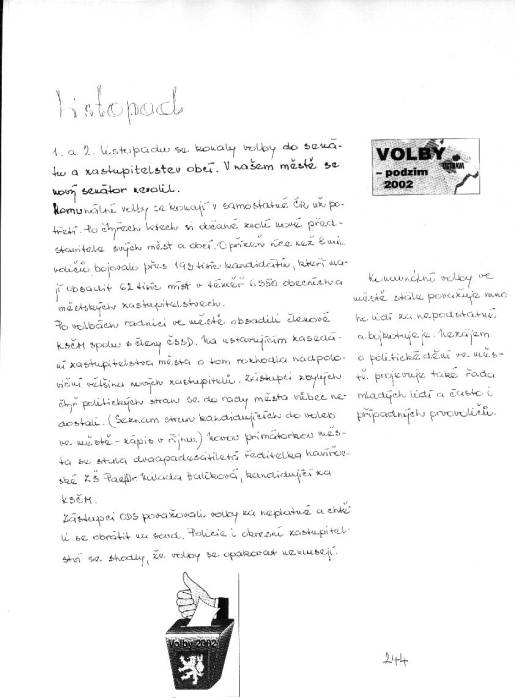 Listopad
1. a 2. listopadu se konaly volby do sená-
tu a zastupitelstev obcí. V našem městě se
nový senátor nevolil.
Komunální volby se konají v samostatné ČR už po-
třetí. Po čtyřech letech si občané zvolí nové před-
stavitele svých měst a obcí. O přízeň více než 8 mil.
voličů bojovalo přes 193 tisíc kandidátů, kteří ma-
jí obsadit 62 tisíc míst v téměř 6 350 obecních a
městských zastupitelstvech.
Po volbách radnici ve městě obsadili členové
KSČM spolu s členy ČSSD. Na ustavujícím zasedá-
ní zastupitelstva města o tom rozhodla nadpolo-
viční většina nových zastupitelů. Zástupci zbylých
čtyř politických stran se do rady města vůbec ne-
dostali. (Seznam stran kandidujících do voleb
ve městě - zápis v říjnu.) Novou primátorkou měs-
ta se stala dvaapadesátiletá ředitelka havířov-
ské ZŠ PaedDr. Milada Halíková, kandidující za
KSČM.
Zástupci ODS považovali volby za neplatné a chtě-
li se obrátit na soud. Policie i okresní zastupitel-
ství se shodly, že volby se opakovat nemusejí.
VOLBY
OSTRAVA
– podzim
2002
Komunální volby ve
městě stále považuje mno-
ho lidí za nepodstatné
a bojkotuje je. Nezájem
o politické dění ve měs-
tě projevuje také řada
mladých lidí a často i
případných prvovoličů.
Volby 2002
244